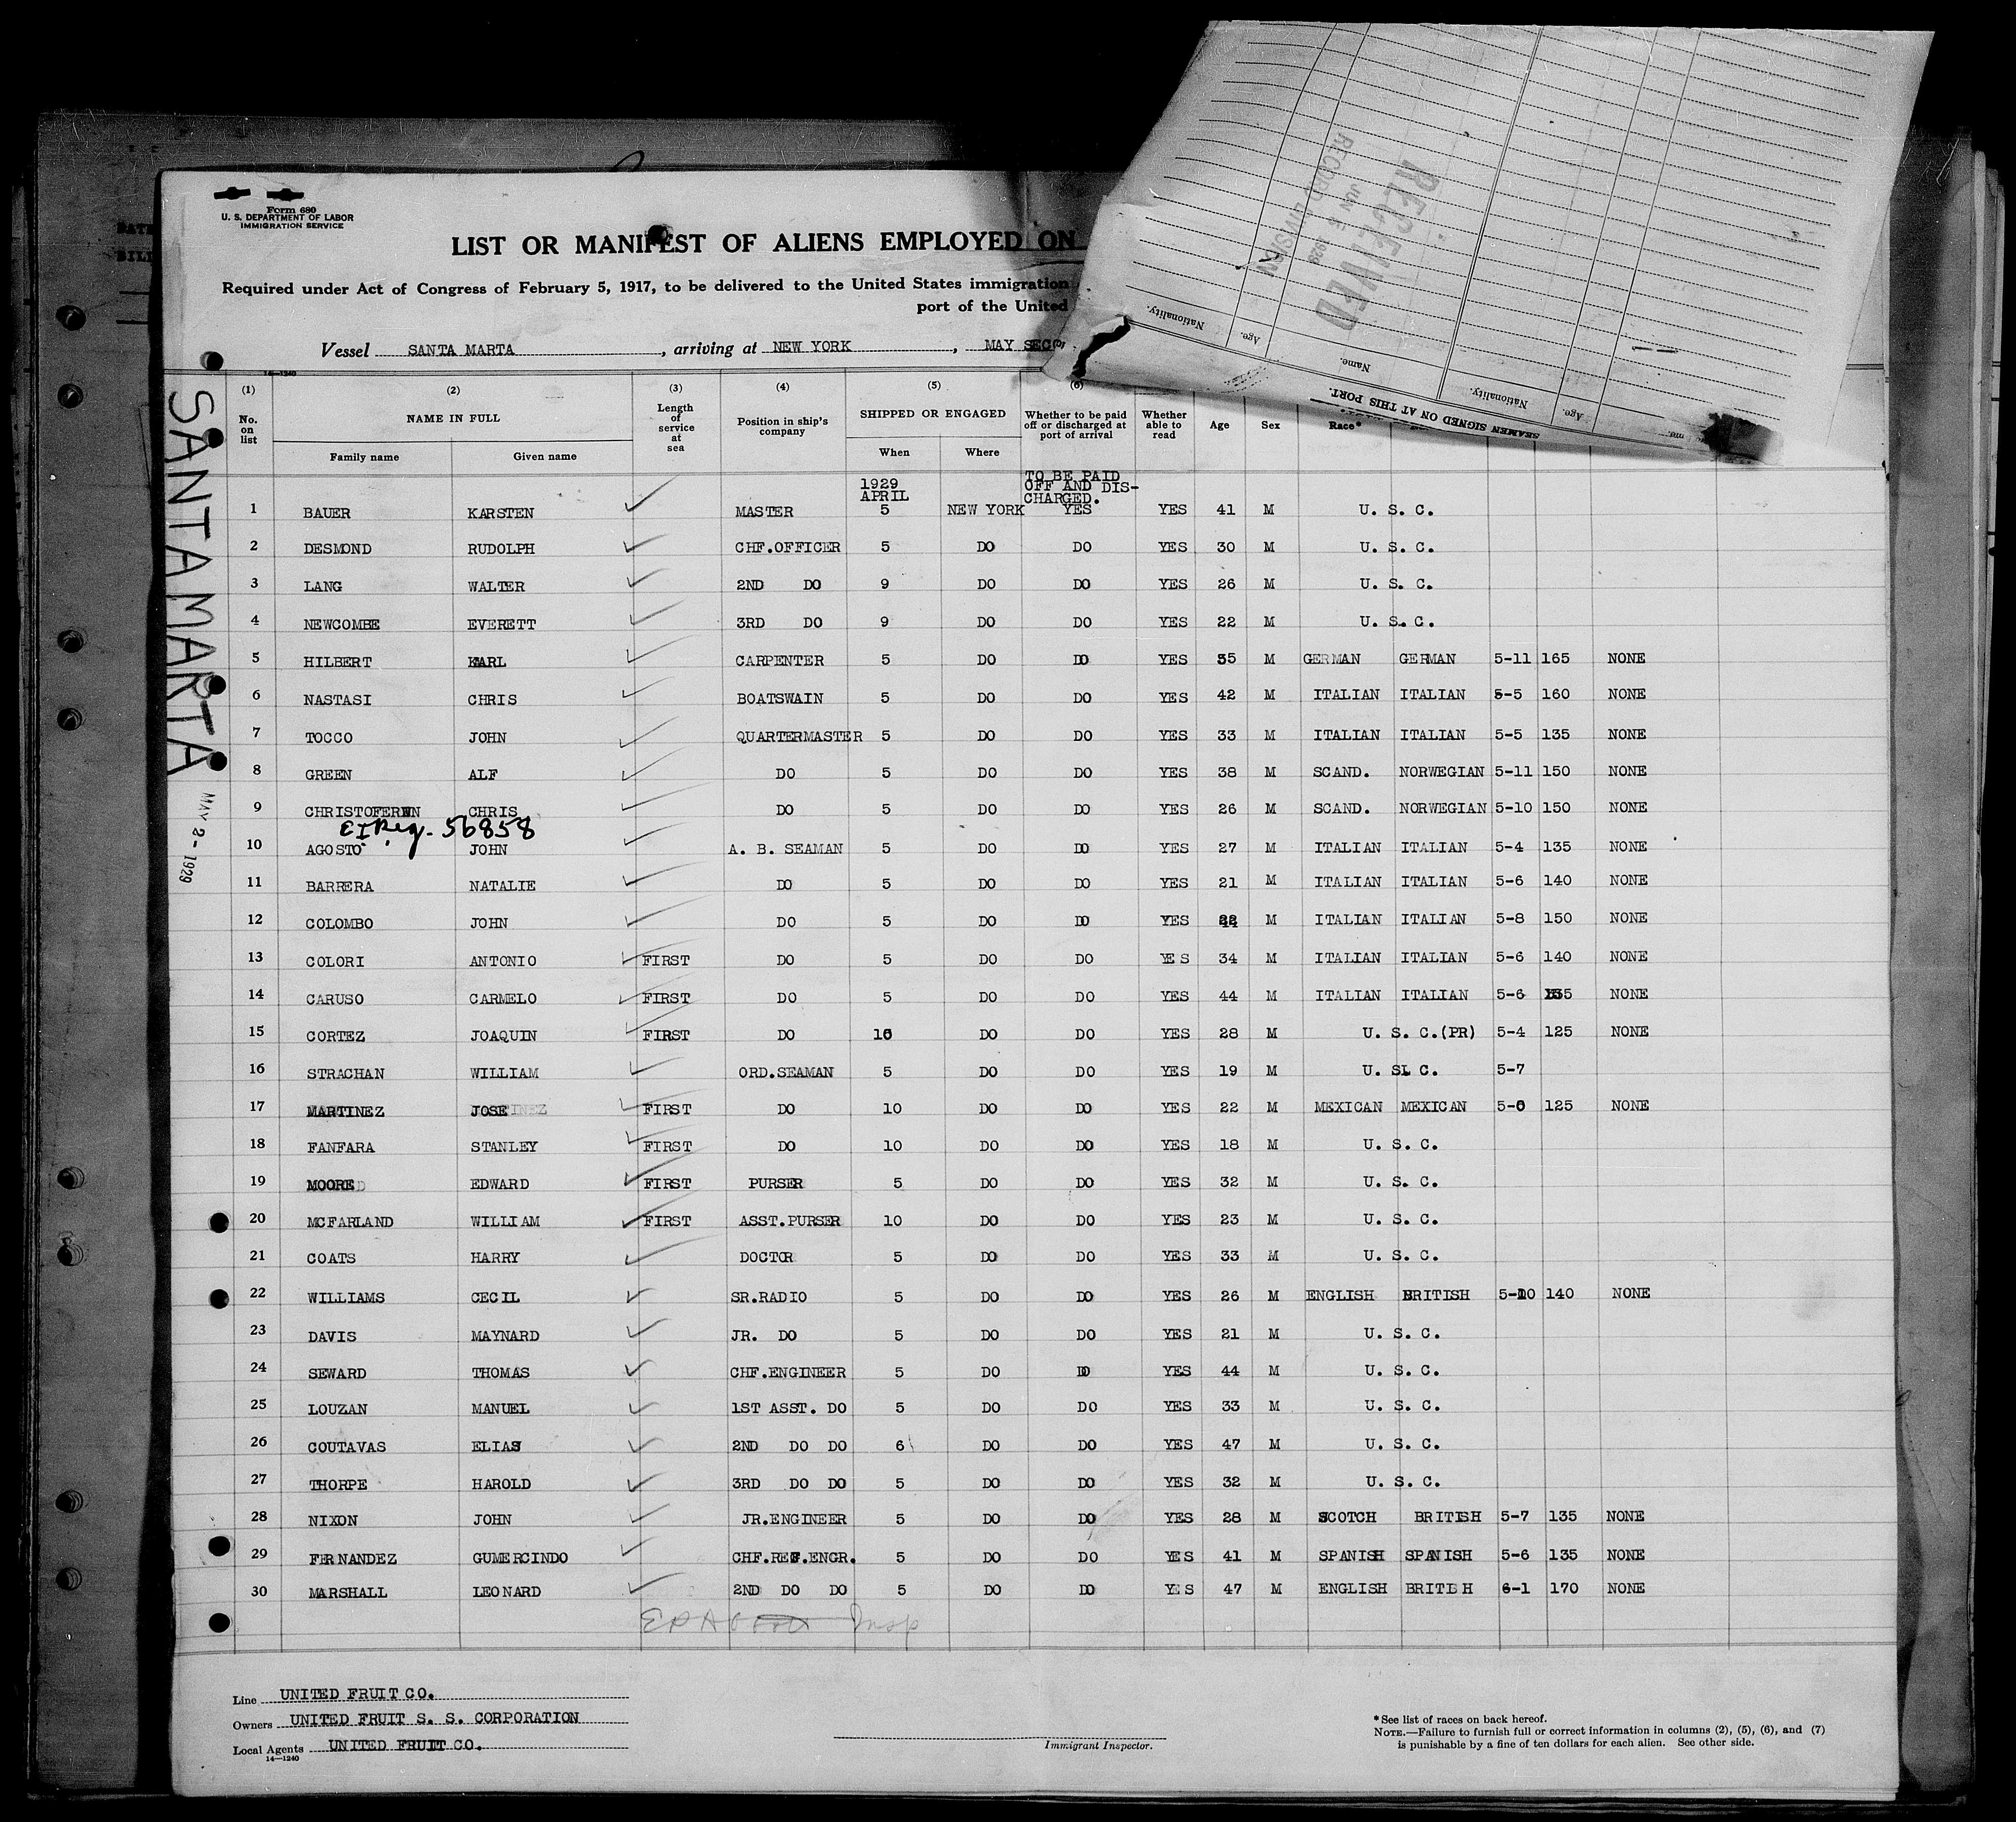 Form 680
U. S. DEPARTMENT OF LABOR
IMMIGRATION SERVICE
LIST OR MANIFEST OF ALIENS EMPLOYED ON
Required under Act of Congress of February 5, 1917, to be delivered to the United States immigration
port of the United
Vessel SANTA MARTA, arriving at NEW YORK, MAY SECO
RECEIVED
JUN 1929
RECORD DIVISION
Nationality. Age. Name. Nationality. Age.
SEAMEN SIGNED ON AT THIS PORT.
14—1240
(1) (2) (3) (4) (5) (6)
No. on list NAME IN FULL Length of service at sea Position in ship's company SHIPPED OR ENGAGED Whether to be paid off or discharged at port of arrival Whether able to read Age Sex Race*
Family name Given name When Where
1929 APRIL TO BE PAID OFF AND DISCHARGED.
1 BAUER KARSTEN MASTER 5 NEW YORK YES YES 41 M U. S. C.
2 DESMOND RUDOLPH CHF.OFFICER 5 DO DO YES 30 M U. S. C.
3 LANG WALTER 2ND DO 9 DO DO YES 26 M U. S. C.
4 NEWCOMBE EVERETT 3RD DO 9 DO DO YES 22 M U. S. C.
5 HILBERT KARL CARPENTER 5 DO DO YES 35 M GERMAN GERMAN 5-11 165 NONE
6 NASTASI CHRIS BOATSWAIN 5 DO DO YES 42 M ITALIAN ITALIAN 5-5 160 NONE
7 TOCCO JOHN QUARTERMASTER 5 DO DO YES 33 M ITALIAN ITALIAN 5-5 135 NONE
8 GREEN ALF DO 5 DO DO YES 38 M SCAND. NORWEGIAN 5-11 150 NONE
9 CHRIS DO 5 DO DO YES 26 M SCAND. NORWEGIAN 5-10 150 NONE
EI Reg. 56858
10 AGOSTO JOHN A. B. SEAMAN 5 DO DO YES 27 M ITALIAN ITALIAN 5-4 135 NONE
11 BARRERA NATALIE DO 5 DO DO YES 21 M ITALIAN ITALIAN 5-6 140 NONE
12 COLOMBO JOHN DO 5 DO DO YES M ITALIAN ITALIAN 5-8 150 NONE
13 COLORI ANTONIO FIRST DO 5 DO DO YES 34 M ITALIAN ITALIAN 5-6 140 NONE
14 CARUSO CARMELO FIRST DO 5 DO DO YES 44 M ITALIAN ITALIAN 5-6 NONE
15 CORTEZ JOAQUIN FIRST DO 10 DO DO YES 28 M U. S. C.(PR) 5-4 125 NONE
16 STRACHAN WILLIAM ORD.SEAMAN 5 DO DO YES 19 M U. S. C. 5-7
17 MARTINEZ JOSE FIRST DO 10 DO DO YES 22 M MEXICAN MEXICAN 125 NONE
18 FANFARA STANLEY FIRST DO 10 DO DO YES 18 M U. S. C.
19 MOORE EDWARD FIRST PURSER 5 DO DO YES 32 M U. S. C.
20 MCFARLAND WILLIAM FIRST ASST.PURSER 10 DO DO YES 23 M U. S. C.
21 COATS HARRY DOCTOR 5 DO DO YES 33 M U. S. C.
22 WILLIAMS CECIL SR.RADIO 5 DO DO YES 26 M ENGLISH BRITISH 5-10 140 NONE
23 DAVIS MAYNARD JR. DO 5 DO DO YES 21 M U. S. C.
24 SEWARD THOMAS CHF.ENGINEER 5 DO DO YES 44 M U. S. C.
25 LOUZAN MANUEL 1ST ASST. DO 5 DO DO YES 33 M U. S. C.
26 COUTAVAS ELIAS 2ND DO DO 6 DO DO YES 47 M U. S. C.
27 THORPE HAROLD 3RD DO DO 5 DO DO YES 32 M U. S. C.
28 NIXON JOHN JR.ENGINEER 5 DO DO YES 28 M SCOTCH BRITISH 5-7 135 NONE
29 FERNANDEZ GUMERCINDO CHF.REF.ENGR. 5 DO DO YES 41 M SPANISH SPANISH 5-6 135 NONE
30 MARSHALL LEONARD 2ND DO DO 5 DO DO YES 47 M ENGLISH BRITISH 6-1 170 NONE
Insp
SANTA MARTA
MAY 2 - 1929
Line UNITED FRUIT CO.
Owners UNITED FRUIT S. S. CORPORATION
Local Agents UNITED FRUIT CO.
14—1240
Immigrant Inspector.
*See list of races on back hereof.
NOTE.—Failure to furnish full or correct information in columns (2), (5), (6), and (7)
is punishable by a fine of ten dollars for each alien. See other side.